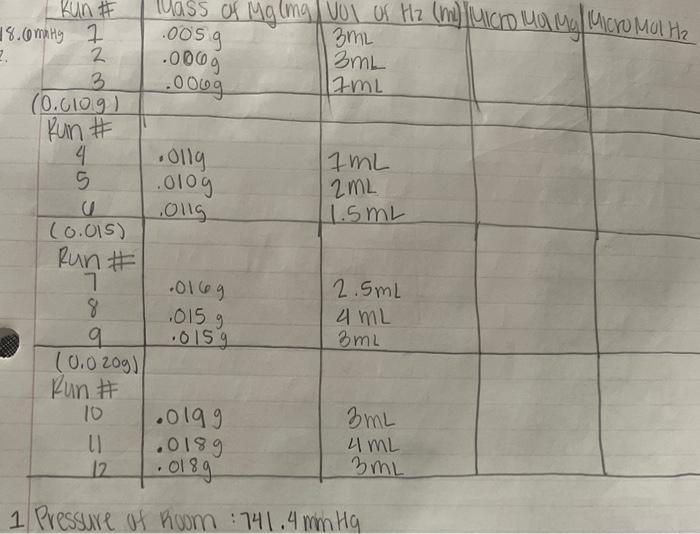 Run # Mass of Mg (mg) Vol of H2 (mL) Micro Mol Mg Micro Mol H2
18.0mmHg 1 .005g 3mL
2. 2 .006g 3mL
3 .006g 7mL
(0.010g)
Run #
4 .011g 7mL
5 .010g 2mL
6 .011g 1.5mL
(0.015)
Run #
7 .016g 2.5mL
8 .015g 4mL
9 .015g 3mL
(0.020g)
Run #
10 .019g 3mL
11 .018g 4mL
12 .018g 3mL
1 Pressure of Room : 741.4 mmHg